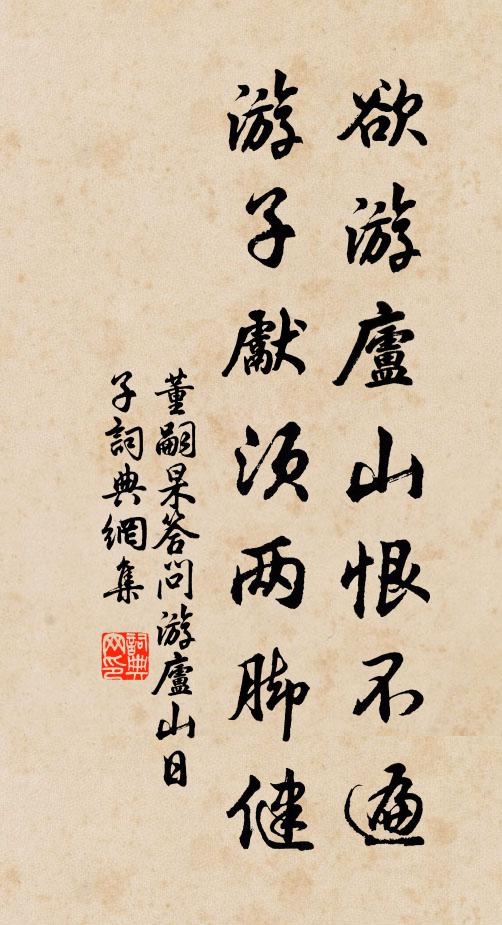 欲游廬山恨不遍
游子獻須两脚健
董嗣杲答問游廬山日
子詞典網集
詞典网印